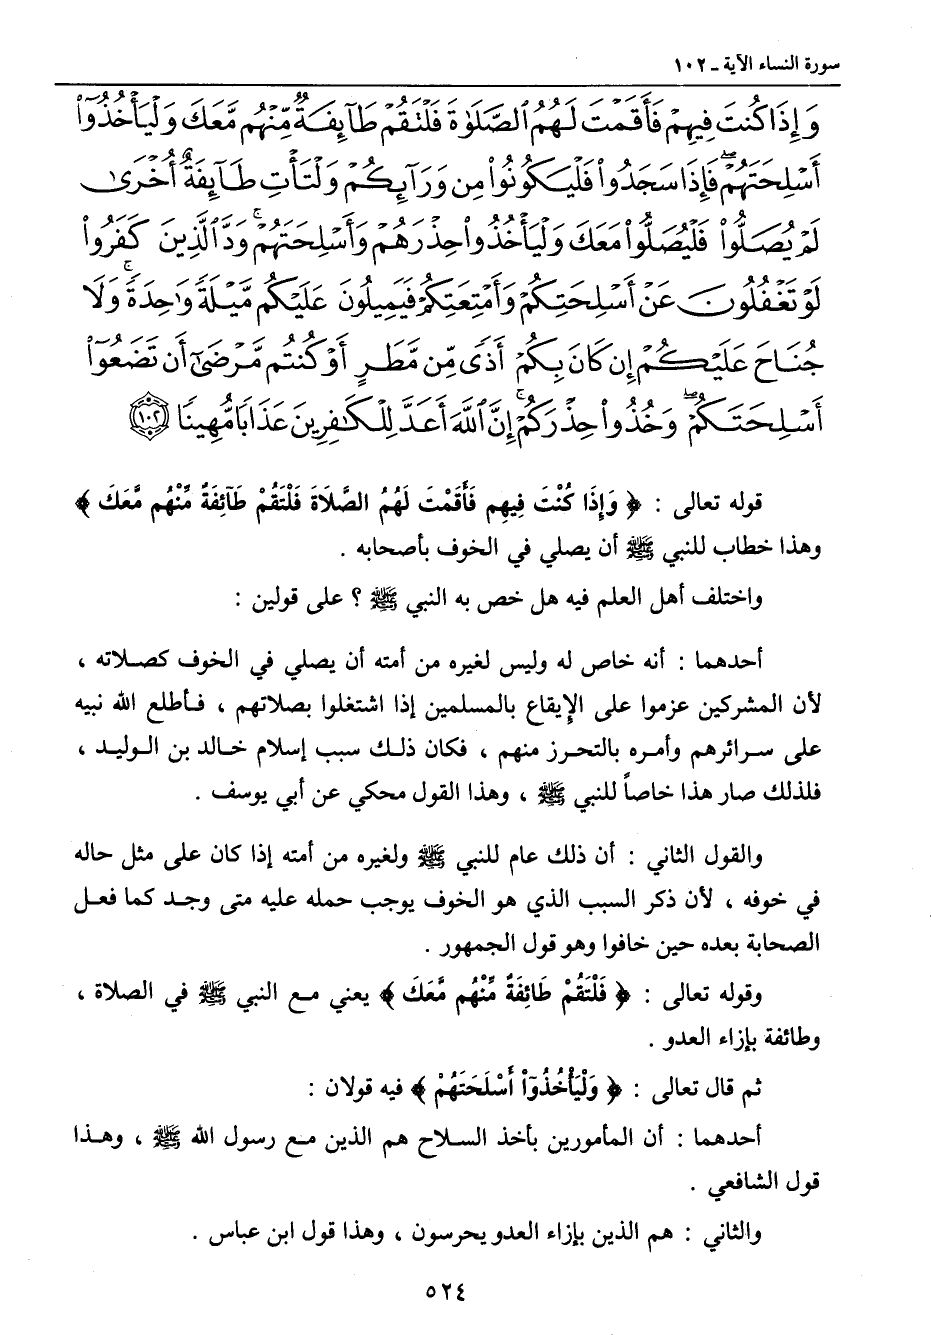 سورة النساء الآية ـ ١٠٢
وَإِذَا كُنتَ فِيهِمْ فَأَقَمْتَ لَهُمُ ٱلصَّلَوٰةَ فَلْتَقُمْ طَآئِفَةٌ مِّنْهُم مَّعَكَ وَلْيَأْخُذُوٓا۟
أَسْلِحَتَهُمْ ۖ فَإِذَا سَجَدُوا۟ فَلْيَكُونُوا۟ مِن وَرَآئِكُمْ وَلْتَأْتِ طَآئِفَةٌ أُخْرَىٰ
لَمْ يُصَلُّوا۟ فَلْيُصَلُّوا۟ مَعَكَ وَلْيَأْخُذُوا۟ حِذْرَهُمْ وَأَسْلِحَتَهُمْ ۗ وَدَّ ٱلَّذِينَ كَفَرُوا۟
لَوْ تَغْفُلُونَ عَنْ أَسْلِحَتِكُمْ وَأَمْتِعَتِكُمْ فَيَمِيلُونَ عَلَيْكُم مَّيْلَةً وَٰحِدَةً ۚ وَلَا
جُنَاحَ عَلَيْكُمْ إِن كَانَ بِكُمْ أَذًى مِّن مَّطَرٍ أَوْ كُنتُم مَّرْضَىٰٓ أَن تَضَعُوٓا۟
أَسْلِحَتَكُمْ ۖ وَخُذُوا۟ حِذْرَكُمْ ۗ إِنَّ ٱللَّهَ أَعَدَّ لِلْكَٰفِرِينَ عَذَابًا مُّهِينًا ١٠٢
قوله تعالى : ﴿ وَإِذَا كُنْتَ فِيهِم فَأَقَمْتَ لَهُمُ الصَّلَاةَ فَلْتَقُمْ طَآئِفَةٌ مِّنْهُم مَّعَكَ ﴾
وهذا خطاب للنبي ﷺ أن يصلي في الخوف بأصحابه .
واختلف أهل العلم فيه هل خص به النبي ﷺ ؟ على قولين :
أحدهما : أنه خاص له وليس لغيره من أمته أن يصلي في الخوف كصلاته ،
لأن المشركين عزموا على الإيقاع بالمسلمين إذا اشتغلوا بصلاتهم ، فأطلع الله نبيه
على سرائرهم وأمره بالتحرز منهم ، فكان ذلك سبب إسلام خالد بن الوليد ،
فلذلك صار هذا خاصاً للنبي ﷺ ، وهذا القول محكي عن أبي يوسف .
والقول الثاني : أن ذلك عام للنبي ﷺ ولغيره من أمته إذا كان على مثل حاله
في خوفه ، لأن ذكر السبب الذي هو الخوف يوجب حمله عليه متى وجد كما فعل
الصحابة بعده حين خافوا وهو قول الجمهور .
وقوله تعالى : ﴿ فَلْتَقُمْ طَائِفَةٌ مِّنْهُم مَّعَكَ ﴾ يعني مع النبي ﷺ في الصلاة ،
وطائفة بإزاء العدو .
ثم قال تعالى : ﴿ وَلْيَأْخُذُوٓاْ أَسْلَحَتَهُمْ ﴾ فيه قولان :
أحدهما : أن المأمورين بأخذ السلاح هم الذين مع رسول الله ﷺ ، وهذا
قول الشافعي .
والثاني : هم الذين بإزاء العدو يحرسون ، وهذا قول ابن عباس .
٥٢٤